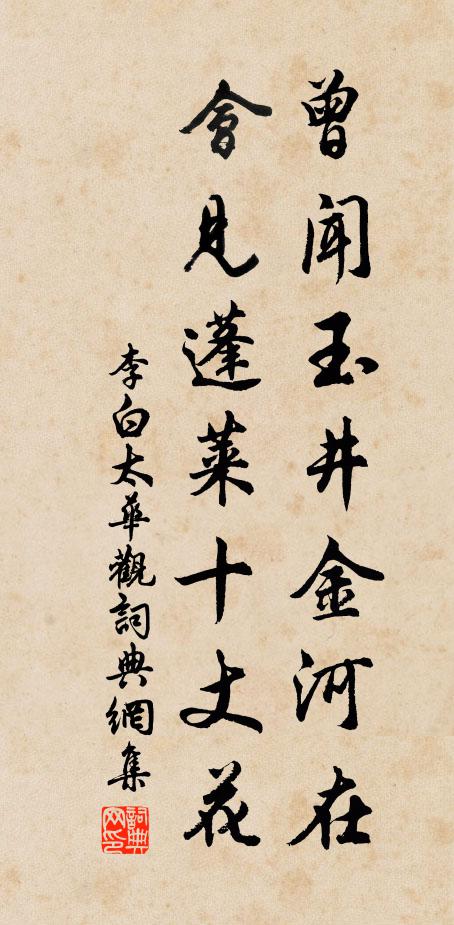 曾聞玉井金河在
會見蓬萊十丈花
李白太華觀詞典網集
詞典网印